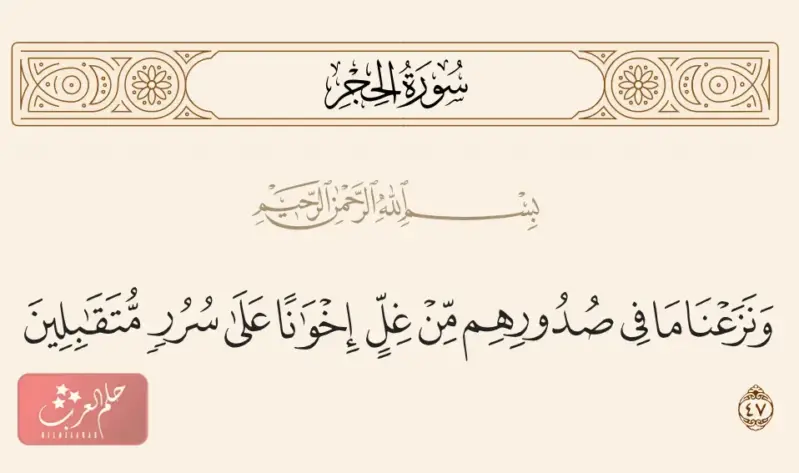 سُورَةُ الحِجْرِ
بِسْمِ اللَّهِ الرَّحْمَٰنِ الرَّحِيمِ
وَنَزَعْنَا مَا فِى صُدُورِهِم مِّنْ غِلٍّ إِخْوَٰنًا عَلَىٰ سُرُرٍ مُّتَقَـٰبِلِينَ
٤٧
حلم العرب
HILMELARAB